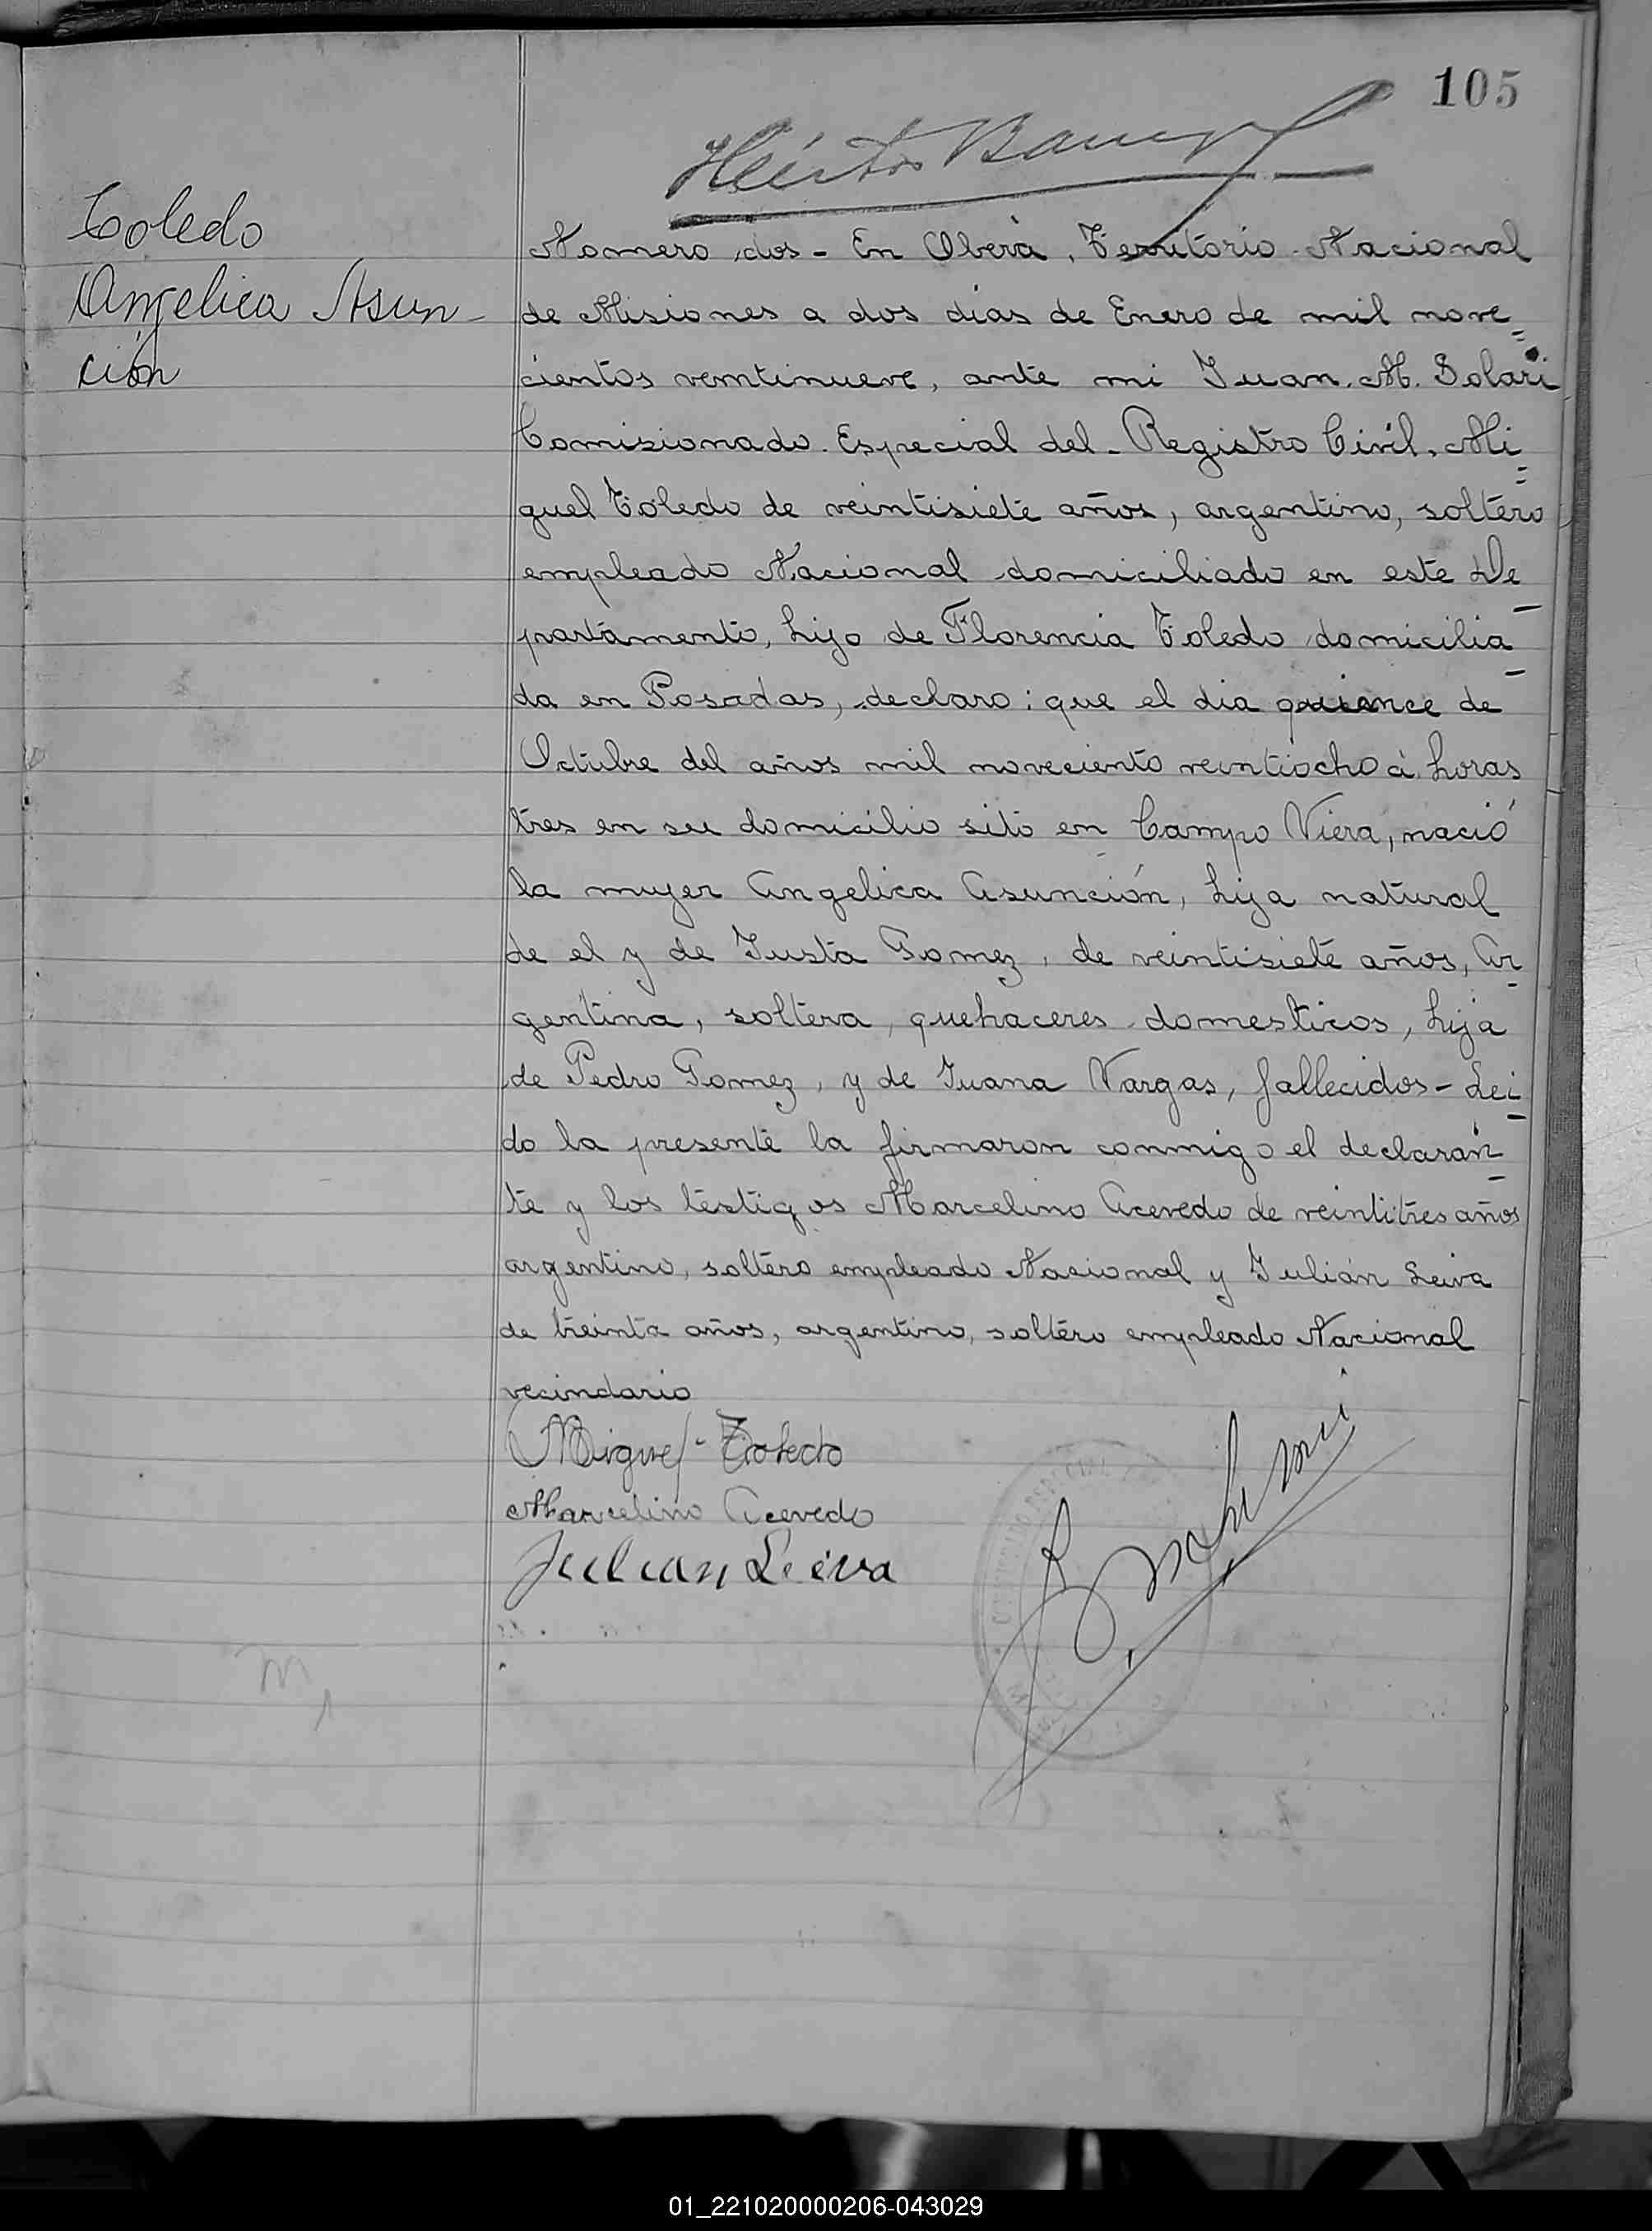 105
Héctor
Toledo
Angelica Asun-
ción
Nomero dos - En Oberá, Territorio Nacional
de Misiones a dos dias de Enero de mil nove=
cientos veintinueve, ante mi Juan. M. Solari
Comisionado Especial del Registro Civil, Mi=
guel Toledo de veintisiete años, argentino, soltero
empleado Nacional domiciliado en este De-
partamento, hijo de Florencia Toledo domicilia-
da en Posadas, declaro: que el dia quince de
Octubre del años mil noveciento veintiocho à horas
tres en su domicilio sito en Campo Viera, nació
la mujer Angelica Asunción, hija natural
de el y de Justa Gomez, de veintisiete años, Ar-
gentina, soltera, quehaceres domesticos, hija
de Pedro Gomez, y de Juana Vargas, fallecidos - Lei-
do la presente la firmaron conmigo el declaran-
te y los testigos Marcelino Acevedo de veintitres años
argentino, soltero empleado Nacional y Julián Leiva
de treinta años, argentino, soltero empleado Nacional
vecindario
Miguel Toledo
Marcelino Acevedo
Julian Leiva
01_221020000206-043029